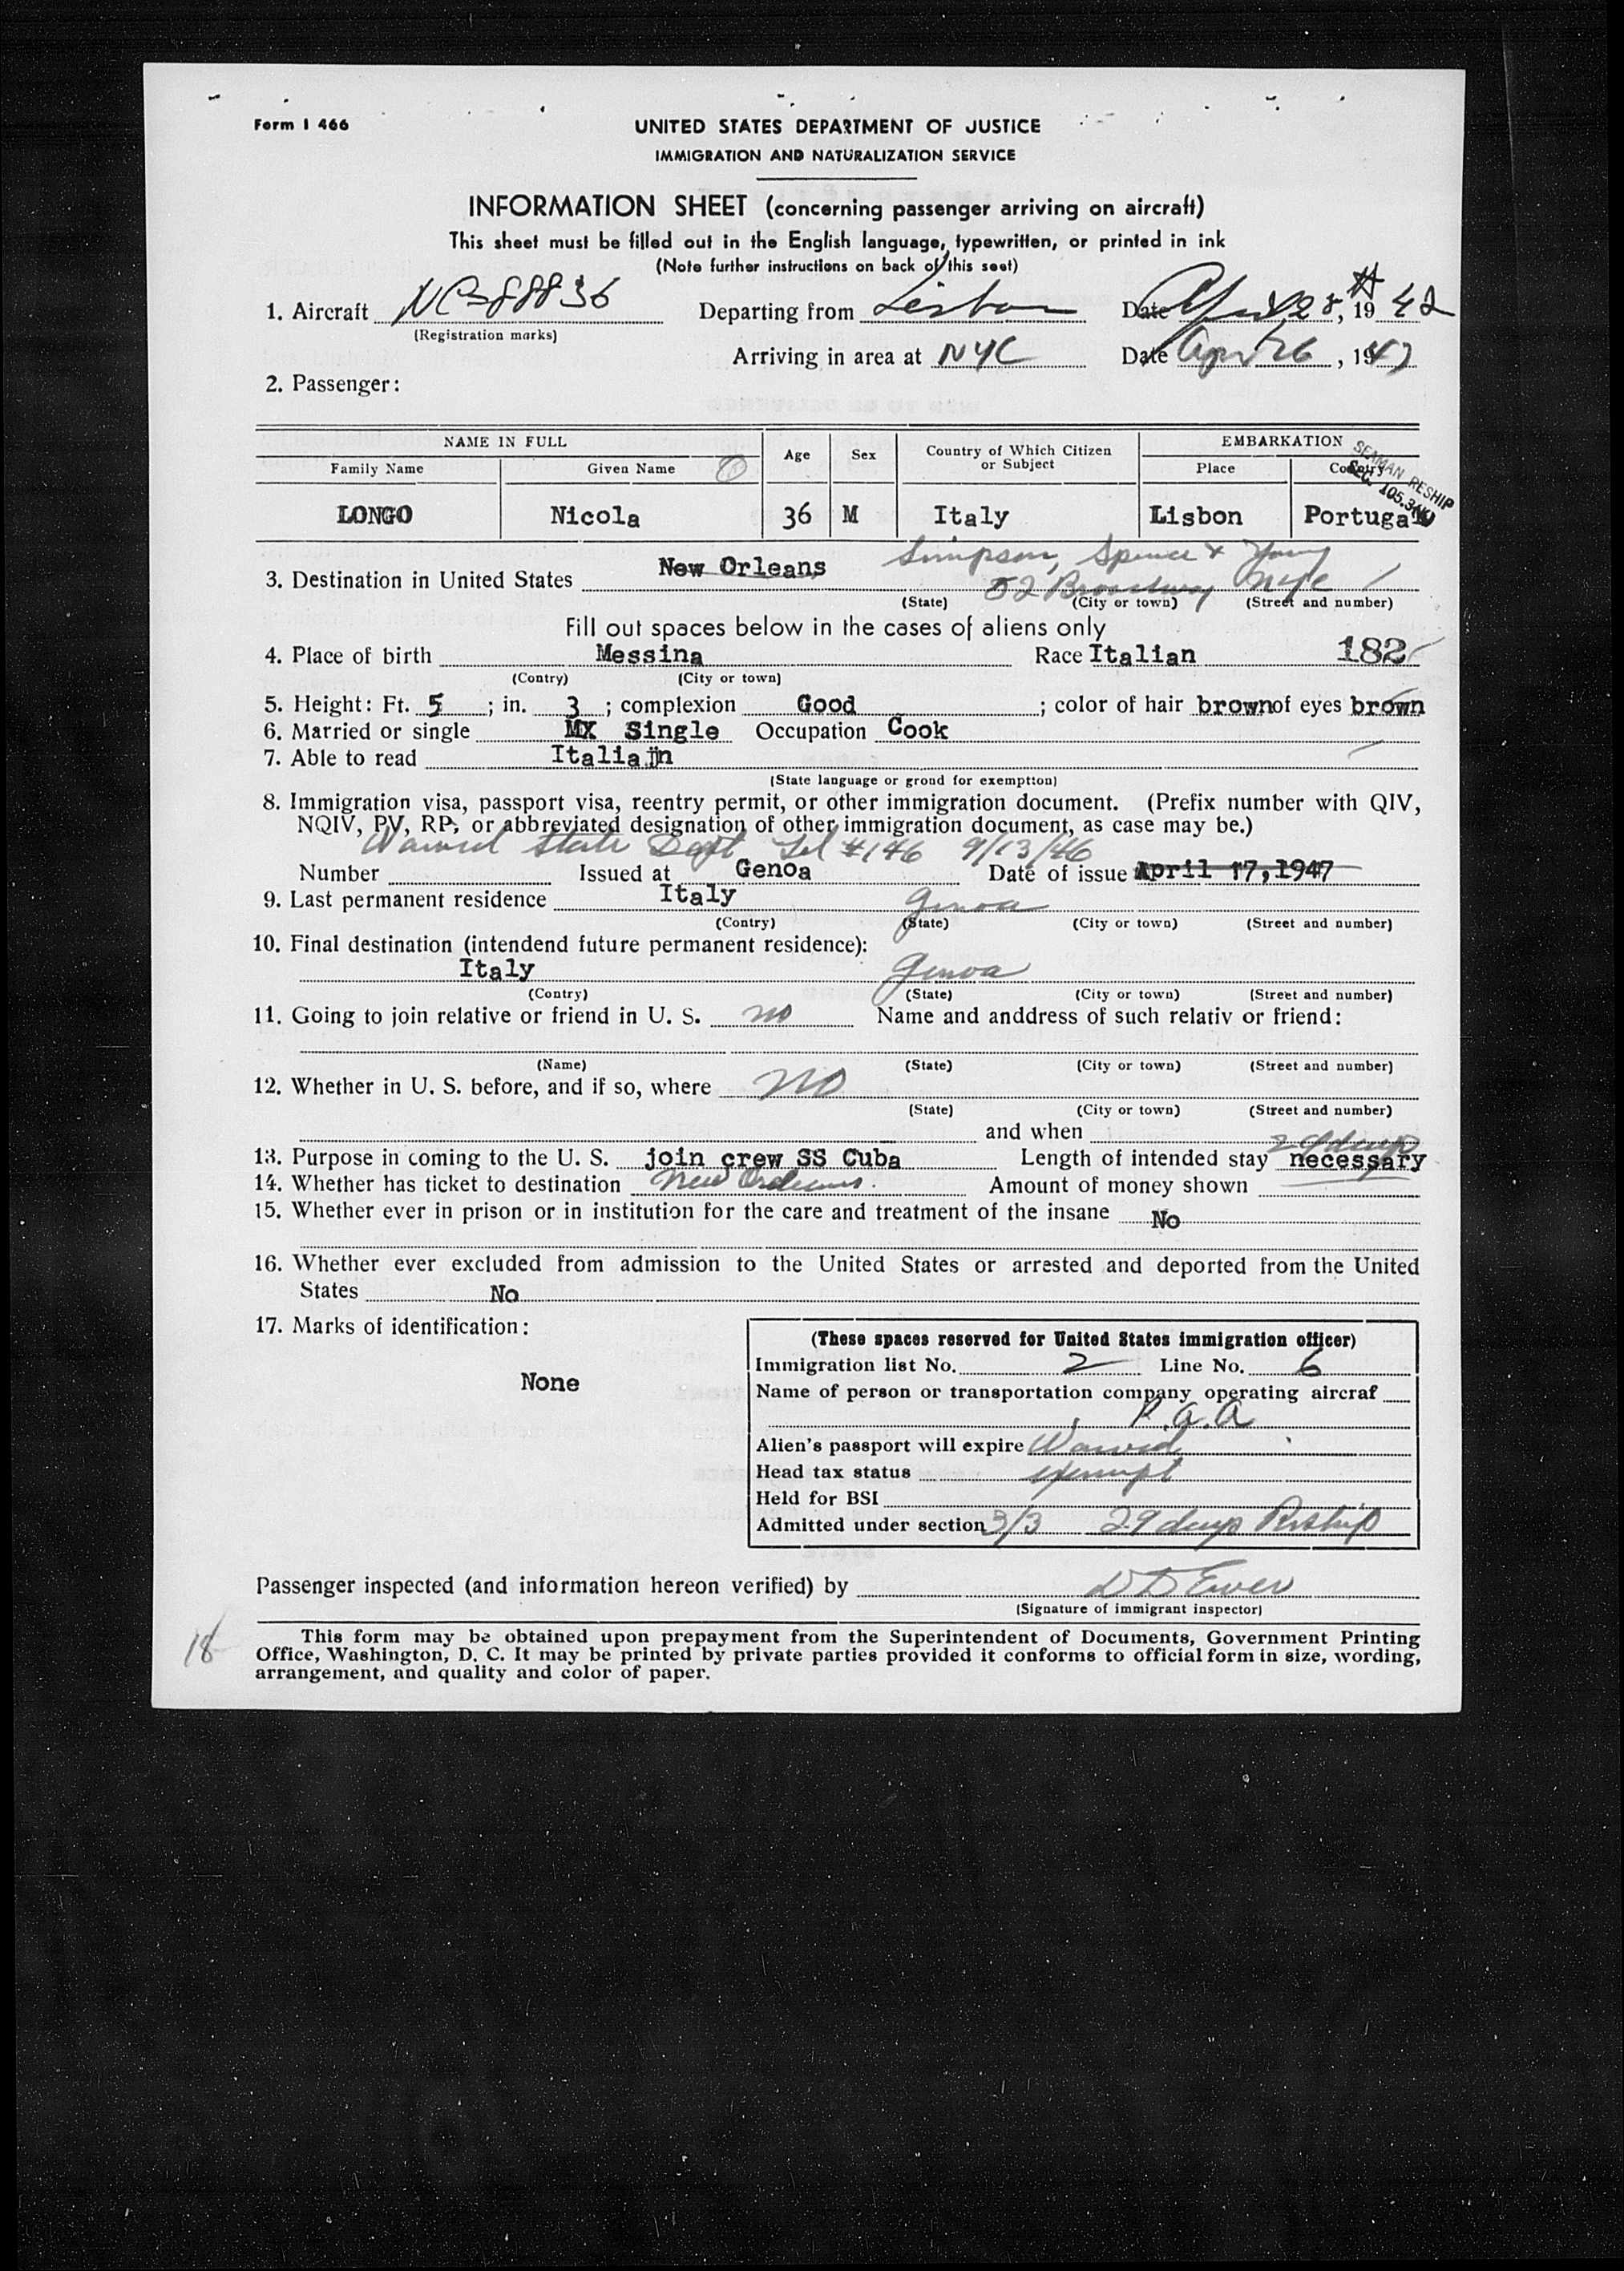 Form I 466
UNITED STATES DEPARTMENT OF JUSTICE
IMMIGRATION AND NATURALIZATION SERVICE
INFORMATION SHEET (concerning passenger arriving on aircraft)
This sheet must be filled out in the English language, typewritten, or printed in ink
(Note further instructions on back of this seet)
1. Aircraft NC 88836 Departing from Lisbon Date April 25, 19
(Registration marks)
Arriving in area at NYC Date Apr 26, 1947
2. Passenger:
NAME IN FULL Age Sex Country of Which Citizen or Subject EMBARKATION
Family Name Given Name Place Country
SEAMAN RESHIP
SEC. 105.3
LONGO Nicola 36 M Italy Lisbon Portugal
Simpson, Spence & Young
3. Destination in United States New Orleans 52 Broadway NYC
(State) (City or town) (Street and number)
Fill out spaces below in the cases of aliens only
4. Place of birth Messina Race Italian 182
(Contry) (City or town)
5. Height: Ft. 5 ; in. 3 ; complexion Good ; color of hair brown of eyes brown
6. Married or single MX Single Occupation Cook
7. Able to read Italian
(State language or grond for exemption)
8. Immigration visa, passport visa, reentry permit, or other immigration document. (Prefix number with QIV,
NQIV, PV, RP, or abbreviated designation of other immigration document, as case may be.)
Waived State Dept Tel #146 9/13/46
Number Issued at Genoa Date of issue April 17, 1947
9. Last permanent residence Italy Genoa
(Contry) (State) (City or town) (Street and number)
10. Final destination (intendend future permanent residence):
Italy Genoa
(Contry) (State) (City or town) (Street and number)
11. Going to join relative or friend in U. S. no Name and anddress of such relativ or friend:
(Name) (State) (City or town) (Street and number)
12. Whether in U. S. before, and if so, where no
(State) (City or town) (Street and number)
and when
29 days
13. Purpose in coming to the U. S. join crew SS Cuba Length of intended stay necessary
14. Whether has ticket to destination New Orleans. Amount of money shown
15. Whether ever in prison or in institution for the care and treatment of the insane No
16. Whether ever excluded from admission to the United States or arrested and deported from the United
States No
17. Marks of identification:
None
(These spaces reserved for United States immigration officer)
Immigration list No. 2 Line No. 6
Name of person or transportation company operating aircraf
P.A.A
Alien's passport will expire Waived
Head tax status exempt
Held for BSI
Admitted under section 3/3 29 days Reship
Passenger inspected (and information hereon verified) by
(Signature of immigrant inspector)
18
This form may be obtained upon prepayment from the Superintendent of Documents, Government Printing
Office, Washington, D. C. It may be printed by private parties provided it conforms to official form in size, wording,
arrangement, and quality and color of paper.